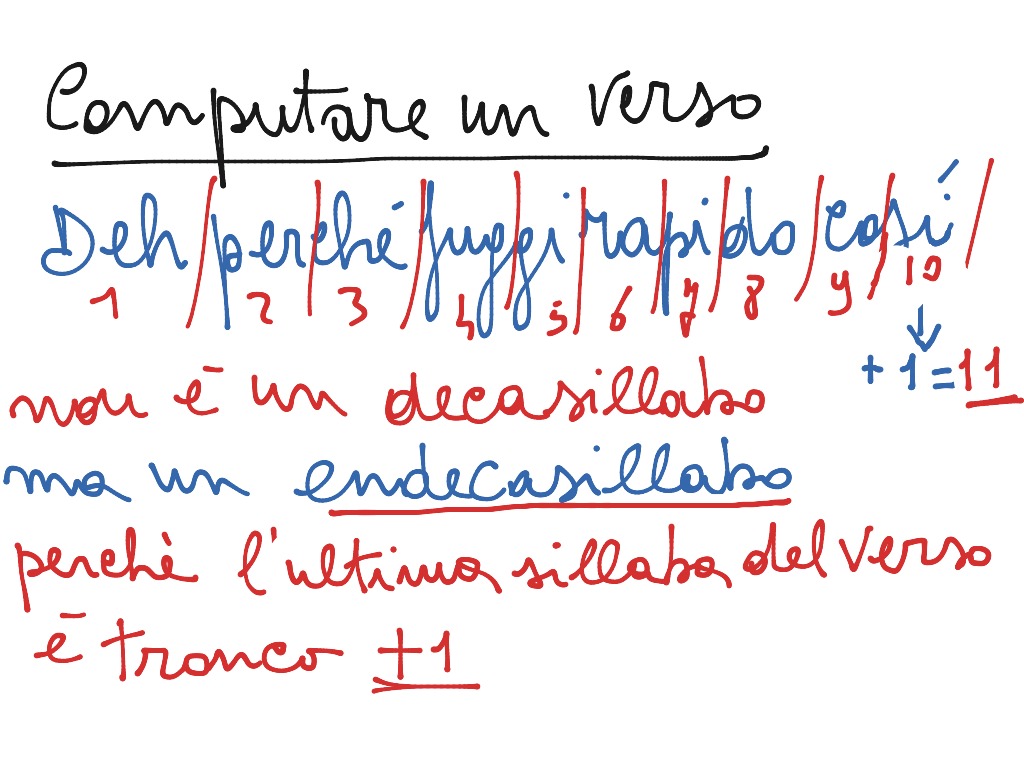 Computare un verso
Deh/per/ché/fug/gi/ra/pi/do/co/sí/
1 2 3 4 5 6 7 8 9 10
+ 1 = 11
non è un decasillabo
ma un endecasillabo
perchè l'ultima sillaba del verso
è tronco +1